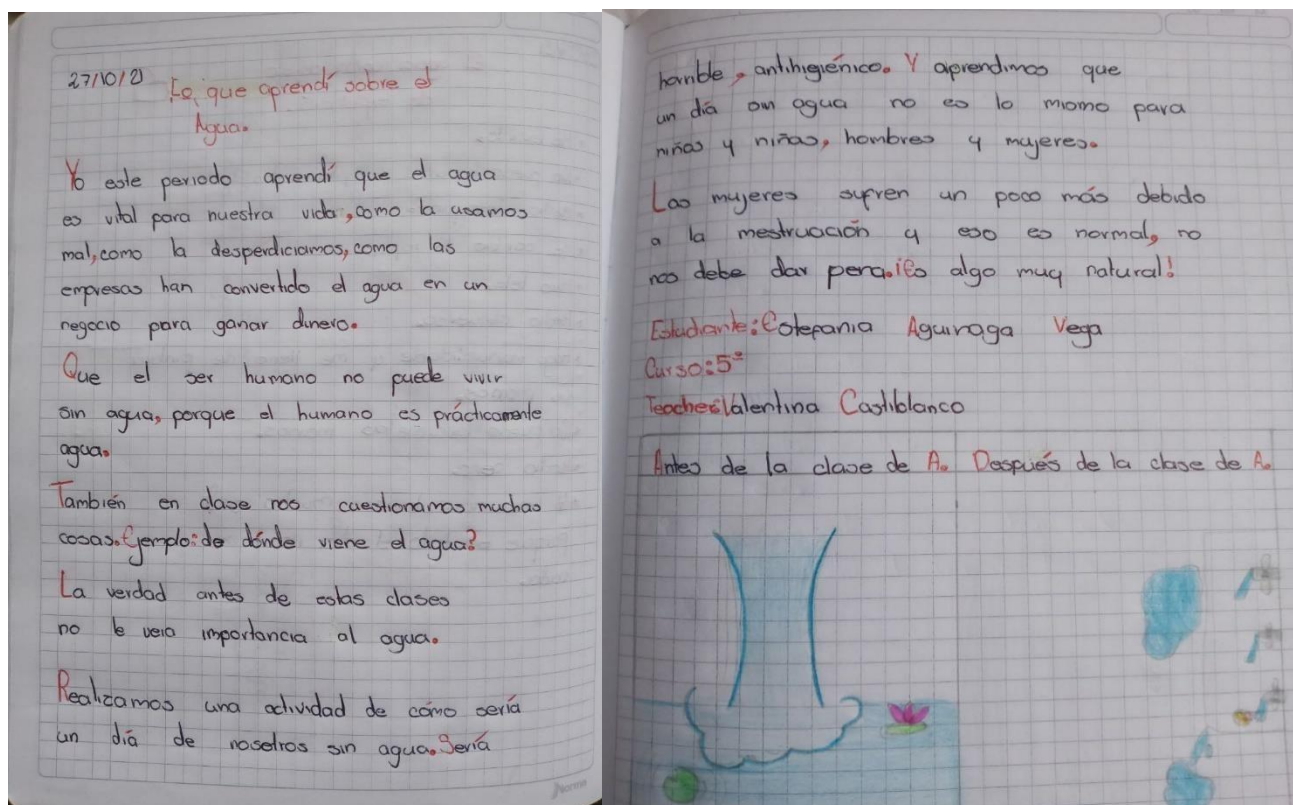 27/10/21
Lo que aprendí sobre el
Agua.
Yo este periodo aprendí que el agua
es vital para nuestra vida, como la usamos
mal, como la desperdiciamos, como las
empresas han convertido el agua en un
negocio para ganar dinero.
Que el ser humano no puede vivir
sin agua, porque el humano es prácticamente
agua.
También en clase nos cuestionamos muchas
cosas. Ejemplo: de dónde viene el agua?
La verdad antes de estas clases
no le veia importancia al agua.
Realizamos una actividad de cómo sería
un día de nosotros sin agua. Sería
Norma
horrible, antihigiénico. Y aprendimos que
un día sin agua no es lo mismo para
niños y niñas, hombres y mujeres.
Las mujeres sufren un poco más debido
a la mestruación y eso es normal, no
nos debe dar pena. ¡Es algo muy natural!
Estudiante: Estepania Aguiraga Vega
Curso: 5º
Teacher: Valentina Castiblanco
Antes de la clase de A. Después de la clase de A.